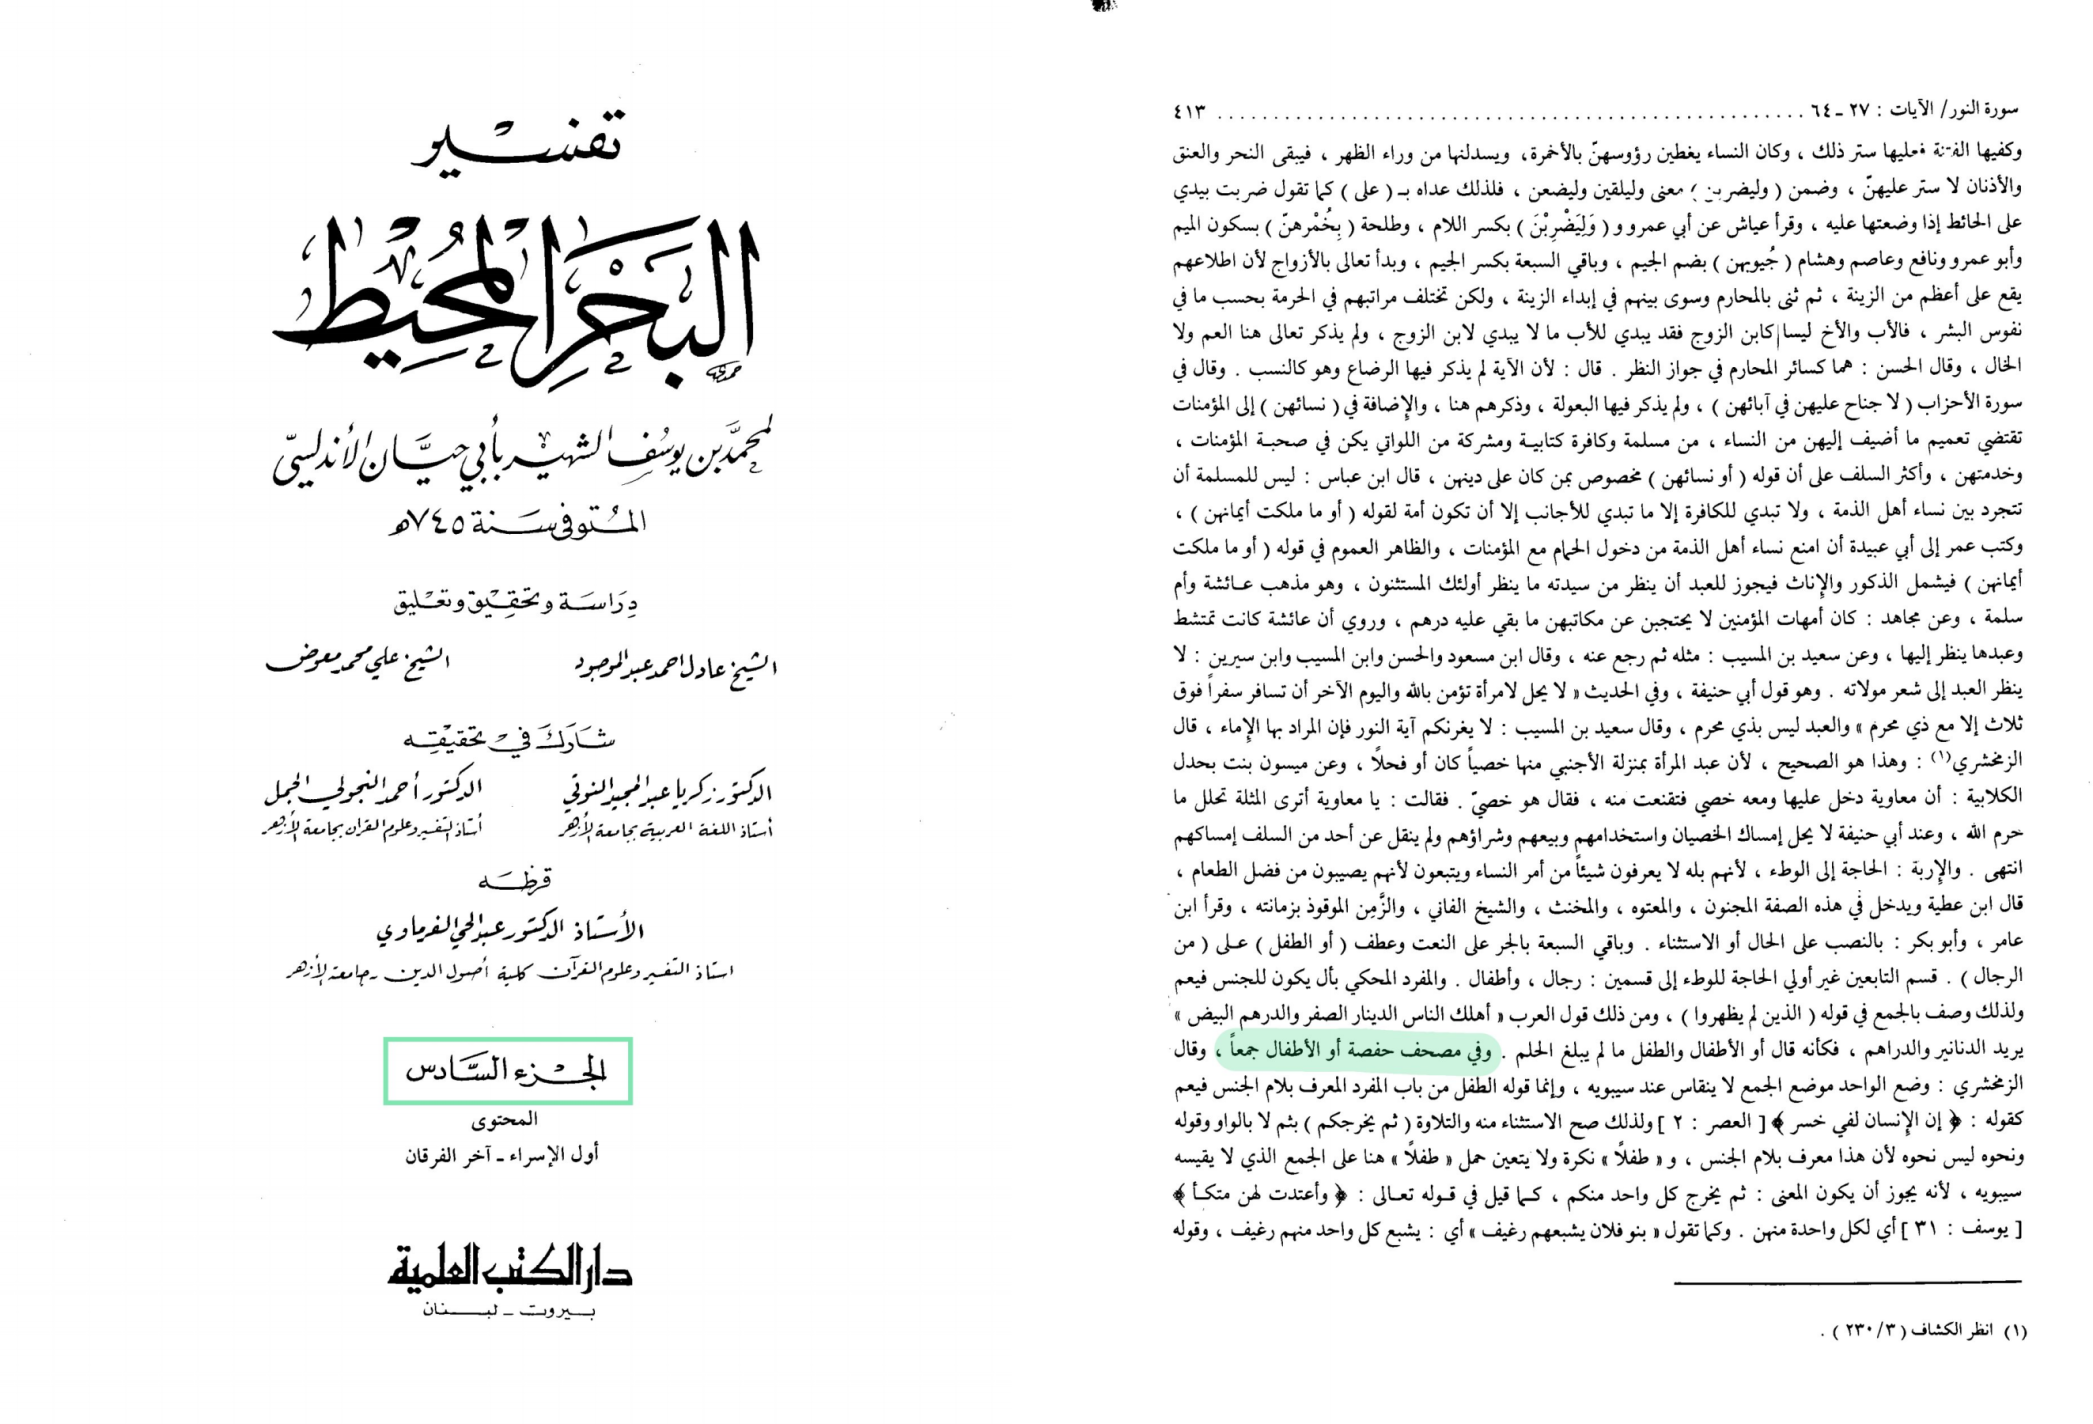 تفسير
البحر المحيط
لمحمد بن يوسف الشهير بأبي حيان الأندلسي
المتوفى سنة ٧٤٥ هـ
دراسة وتحقيق وتعليق
الشيخ عادل احمد عبد الموجود    الشيخ علي محمد معوض
شارك في تحقيقه
الدكتور زكريا عبد المجيد النوتي    الدكتور أحمد النجولي الجمل
أستاذ اللغة العربية بجامعة الأزهر    أستاذ التفسير وعلوم القرآن بجامعة الأزهر
قرظه
الأستاذ الدكتور عبد الحي الفرماوي
استاذ التفسير وعلوم القرآن كلية أصول الدين - جامعة الأزهر
الجزء السادس
المحتوى
أول الإسراء ـ آخر الفرقان
دار الكتب العلمية
بيروت - لبنان
سورة النور/ الآيات : ٢٧ ـ ٦٤ . . . . . . . . . . . . . . . . . . . . ٤١٣
وكفيها الفتنة فعليها ستر ذلك ، وكان النساء يغطين رؤوسهنّ بالأخمرة، ويسدلنها من وراء الظهر ، فيبقى النحر والعنق
والأذنان لا ستر عليهنّ ، وضمن ( وليضربن ) معنى وليلقين وليضعن ، فلذلك عداه بـ ( على ) كما تقول ضربت بيدي
على الحائط إذا وضعتها عليه ، وقرأ عياش عن أبي عمرو و ( وَلِيَضْرِبْنَ ) بكسر اللام ، وطلحة ( بِخُمْرهنّ ) بسكون الميم
وأبو عمرو ونافع وعاصم وهشام ( جُيوبهن ) بضم الجيم ، وباقي السبعة بكسر الجيم ، وبدأ تعالى بالأزواج لأن اطلاعهم
يقع على أعظم من الزينة ، ثم ثنى بالمحارم وسوى بينهم في إبداء الزينة ، ولكن تختلف مراتبهم في الحرمة بحسب ما في
نفوس البشر ، فالأب والأخ ليسا كابن الزوج فقد يبدي للأب ما لا يبدي لابن الزوج ، ولم يذكر تعالى هنا العم ولا
الخال ، وقال الحسن : هما كسائر المحارم في جواز النظر . قال : لأن الآية لم يذكر فيها الرضاع وهو كالنسب . وقال في
سورة الأحزاب ( لا جناح عليهن في آبائهن ) ، ولم يذكر فيها البعولة ، وذكرهم هنا ، والإضافة في ( نسائهن ) إلى المؤمنات
تقتضي تعميم ما أضيف إليهن من النساء ، من مسلمة وكافرة كتابية ومشركة من اللواتي يكن في صحبة المؤمنات ،
وخدمتهن ، وأكثر السلف على أن قوله ( أو نسائهن ) مخصوص بمن كان على دينهن ، قال ابن عباس : ليس للمسلمة أن
تتجرد بين نساء أهل الذمة ، ولا تبدي للكافرة إلا ما تبدي للأجانب إلا أن تكون أمة لقوله ( أو ما ملكت أيمانهن ) ،
وكتب عمر إلى أبي عبيدة أن امنع نساء أهل الذمة من دخول الحمام مع المؤمنات ، والظاهر العموم في قوله ( أو ما ملكت
أيمانهن ) فيشمل الذكور والإناث فيجوز للعبد أن ينظر من سيدته ما ينظر أولئك المستثنون ، وهو مذهب عائشة وأم
سلمة ، وعن مجاهد : كان أمهات المؤمنين لا يحتجبن عن مكاتبهن ما بقي عليه درهم ، وروي أن عائشة كانت تمتشط
وعبدها ينظر إليها ، وعن سعيد بن المسيب : مثله ثم رجع عنه ، وقال ابن مسعود والحسن وابن المسيب وابن سيرين : لا
ينظر العبد إلى شعر مولاته . وهو قول أبي حنيفة ، وفي الحديث « لا يحل لامرأة تؤمن بالله واليوم الآخر أن تسافر سفراً فوق
ثلاث إلا مع ذي محرم » والعبد ليس بذي محرم ، وقال سعيد بن المسيب : لا يغرنكم آية النور فإن المراد بها الإماء ، قال
الزمخشري(١) : وهذا هو الصحيح ، لأن عبد المرأة بمنزلة الأجنبي منها خصياً كان أو فحلًا ، وعن ميسون بنت بحدل
الكلابية : أن معاوية دخل عليها ومعه خصي فتقنعت منه ، فقال هو خصيّ . فقالت : يا معاوية أترى المثلة تحلل ما
حرم الله ، وعند أبي حنيفة لا يحل إمساك الخصيان واستخدامهم وبيعهم وشراؤهم ولم ينقل عن أحد من السلف إمساكهم
انتهى . والإربة : الحاجة إلى الوطء ، لأنهم بله لا يعرفون شيئاً من أمر النساء ويتبعون لأنهم يصيبون من فضل الطعام ،
قال ابن عطية ويدخل في هذه الصفة المجنون ، والمعتوه ، والمخنث ، والشيخ الفاني ، والزَّمِن الموقوذ بزمانته ، وقرأ ابن
عامر ، وأبو بكر : بالنصب على الحال أو الاستثناء . وباقي السبعة بالجر على النعت وعطف ( أو الطفل ) على ( من
الرجال ) . قسم التابعين غير أولي الحاجة للوطء إلى قسمين : رجال ، وأطفال . والمفرد المحكي بأل يكون للجنس فيعم
ولذلك وصف بالجمع في قوله ( الذين لم يظهروا ) ، ومن ذلك قول العرب « أهلك الناس الدينار الصفر والدرهم البيض »
يريد الدنانير والدراهم ، فكأنه قال أو الأطفال والطفل ما لم يبلغ الحلم . وفي مصحف حفصة أو الأطفال جمعاً ، وقال
الزمخشري : وضع الواحد موضع الجمع لا ينقاس عند سيبويه ، وإنما قوله الطفل من باب المفرد المعرف بلام الجنس فيعم
كقوله : ﴿ إن الإنسان لفي خسر ﴾ [ العصر : ٢ ] ولذلك صح الاستثناء منه والتلاوة ( ثم يخرجكم ) بثم لا بالواو وقوله
ونحوه ليس نحوه لأن هذا معرف بلام الجنس ، و « طفلًا » نكرة ولا يتعين حمل « طفلًا » هنا على الجمع الذي لا يقيسه
سيبويه ، لأنه يجوز أن يكون المعنى : ثم يخرج كل واحد منكم ، كما قيل في قوله تعالى : ﴿ وأعتدت لهن متكأ ﴾
[ يوسف : ٣١ ] أي لكل واحدة منهن . وكما تقول « بنو فلان يشبعهم رغيف » أي : يشبع كل واحد منهم رغيف ، وقوله
(١) انظر الكشاف ( ٢٣٠/٣ ) .